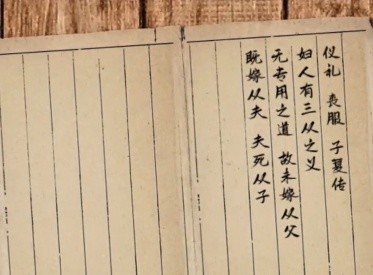 仪礼 丧服 子夏传
妇人有三从之义
无专用之道 故未嫁从父
既嫁从夫 夫死从子